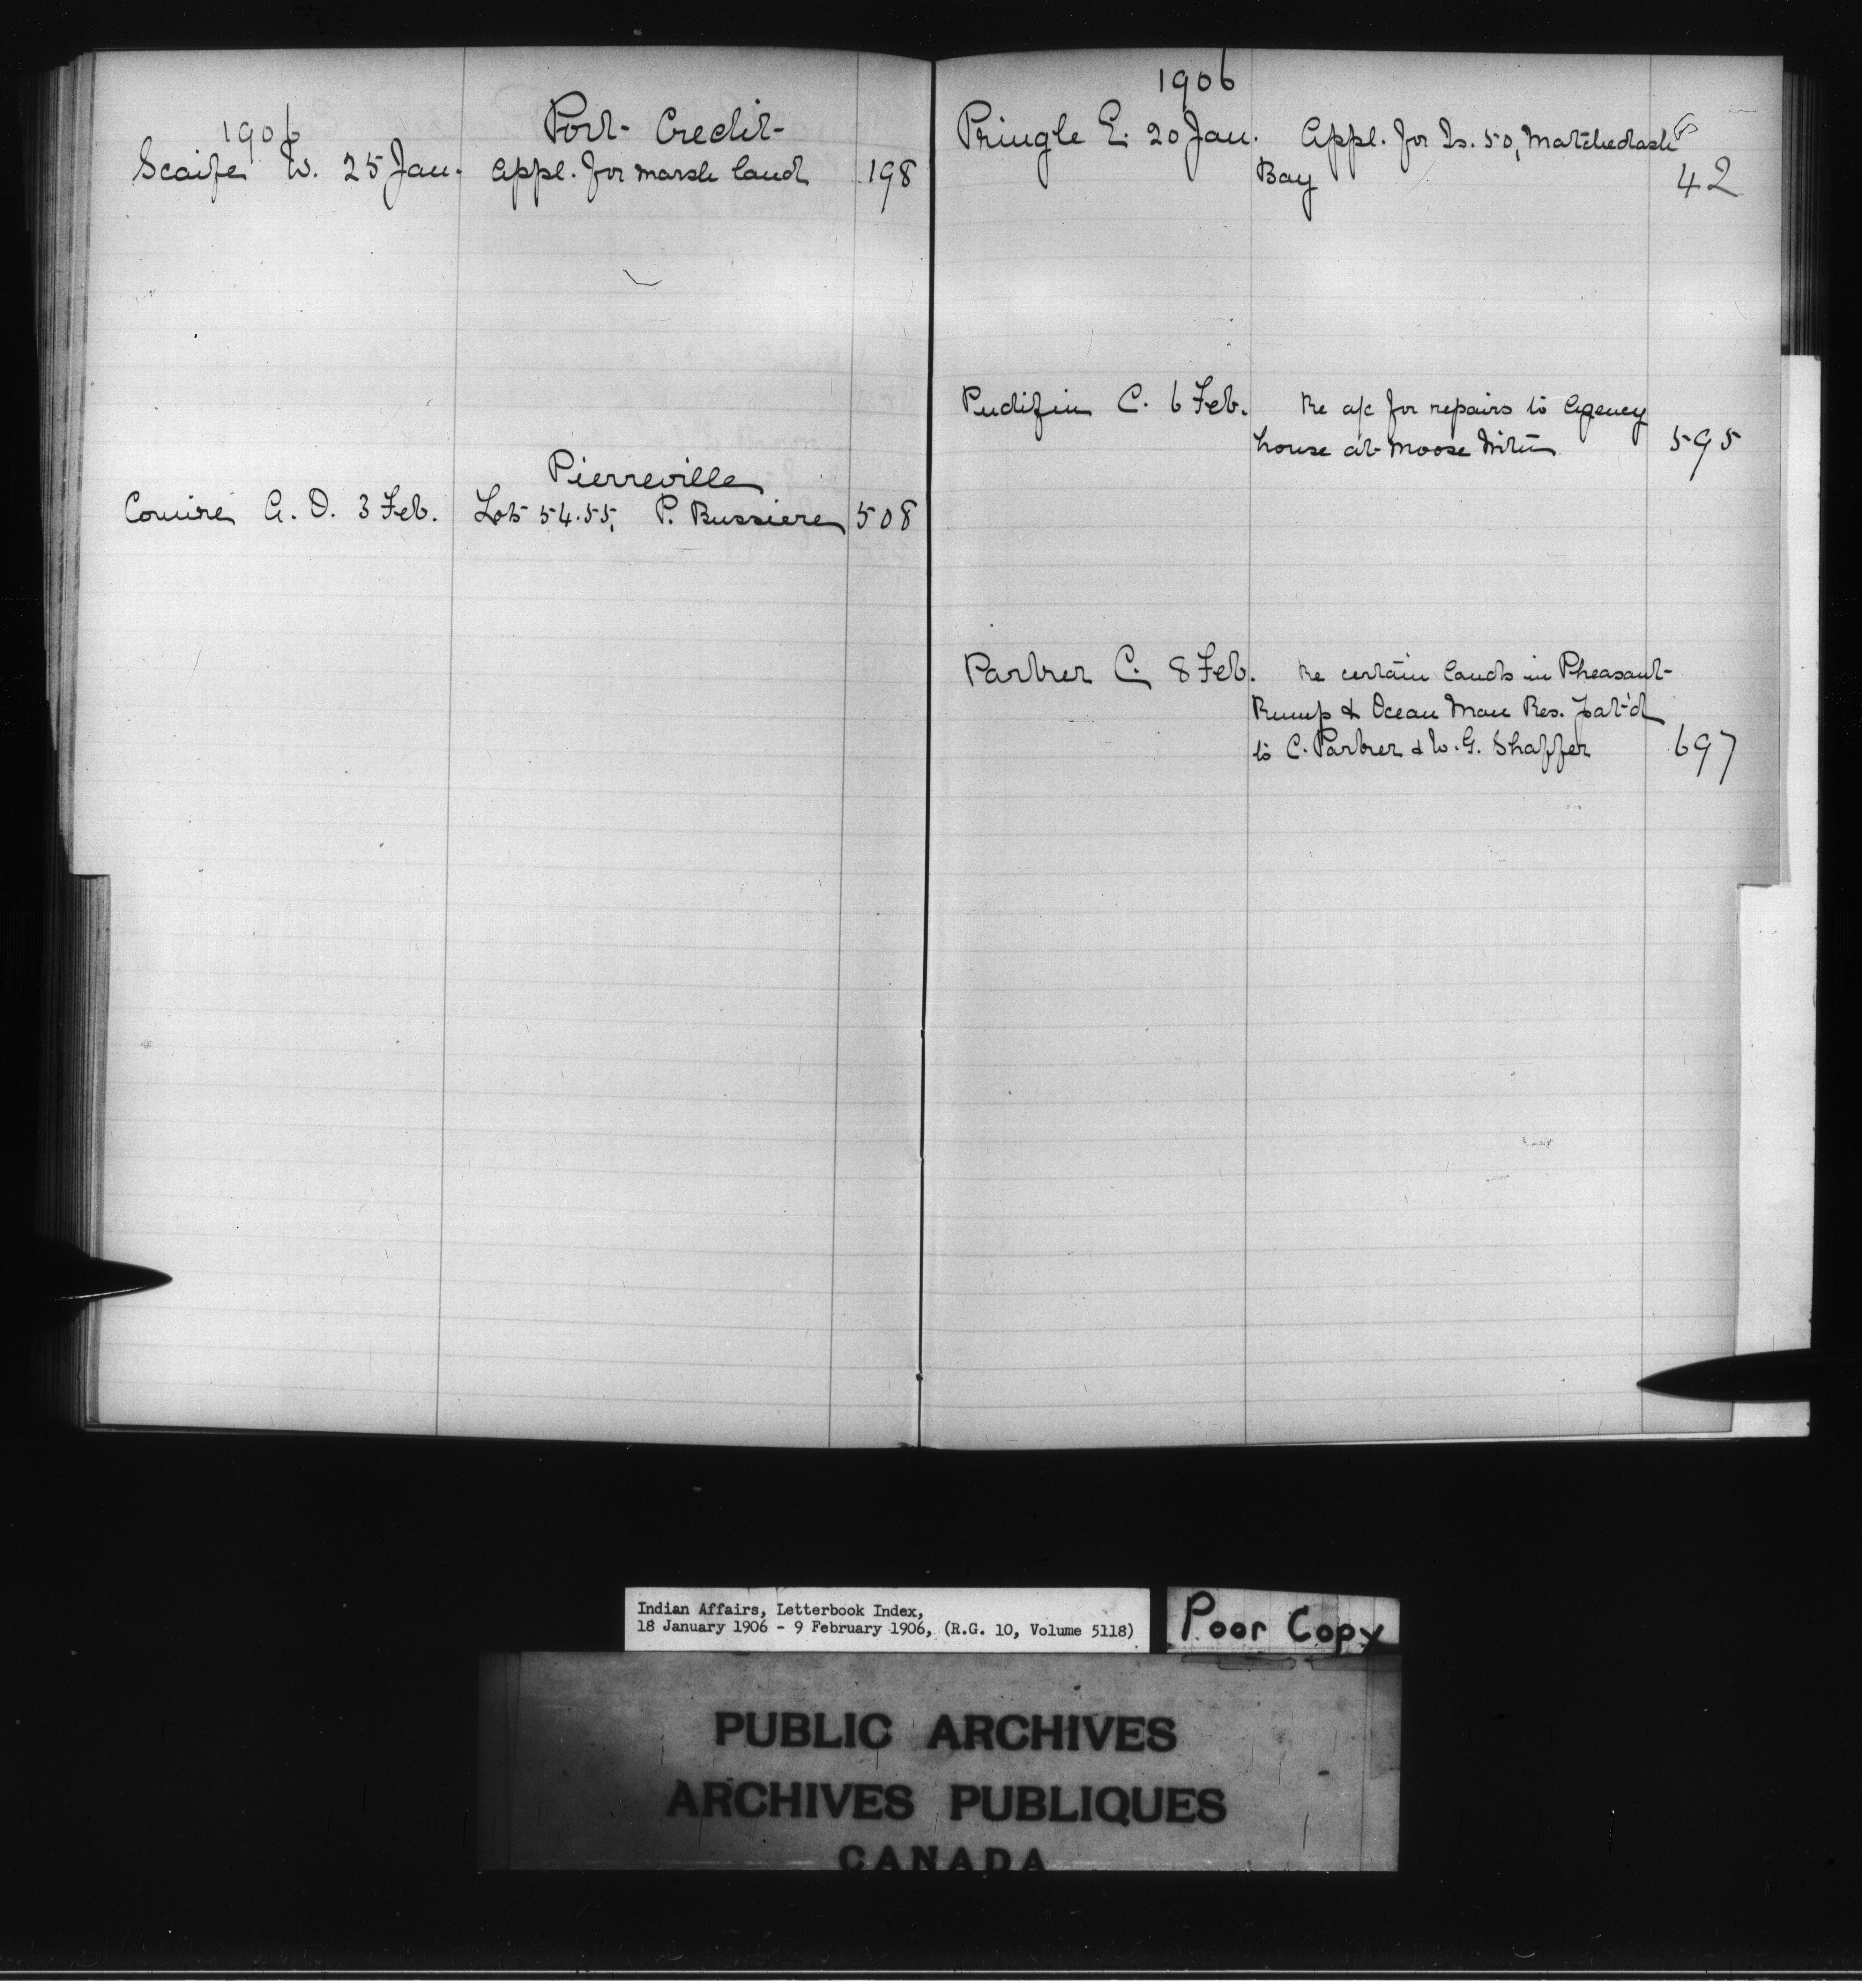 1906
Port Credit
Scaife W. 25 Jan. Appl. for marsh land 198
Pierreville
Comire A. O. 3 Feb. Lots 54.55, P. Bussiere 508
1906
Pringle E. 20 Jan. Appl. for Is. 50, Matchedash
Bay 42
Pudifin C. 6 Feb. Re a/c for repairs to Agency
house at Moose Mtn 595
Parker C. 8 Feb. Re certain lands in Pheasant
Rump & Ocean Man Res. pat'd
to C. Parker & W. G. Shaffer 697
Indian Affairs, Letterbook Index,
18 January 1906 - 9 February 1906, (R.G. 10, Volume 5118)
Poor Copy
PUBLIC ARCHIVES
ARCHIVES PUBLIQUES
CANADA